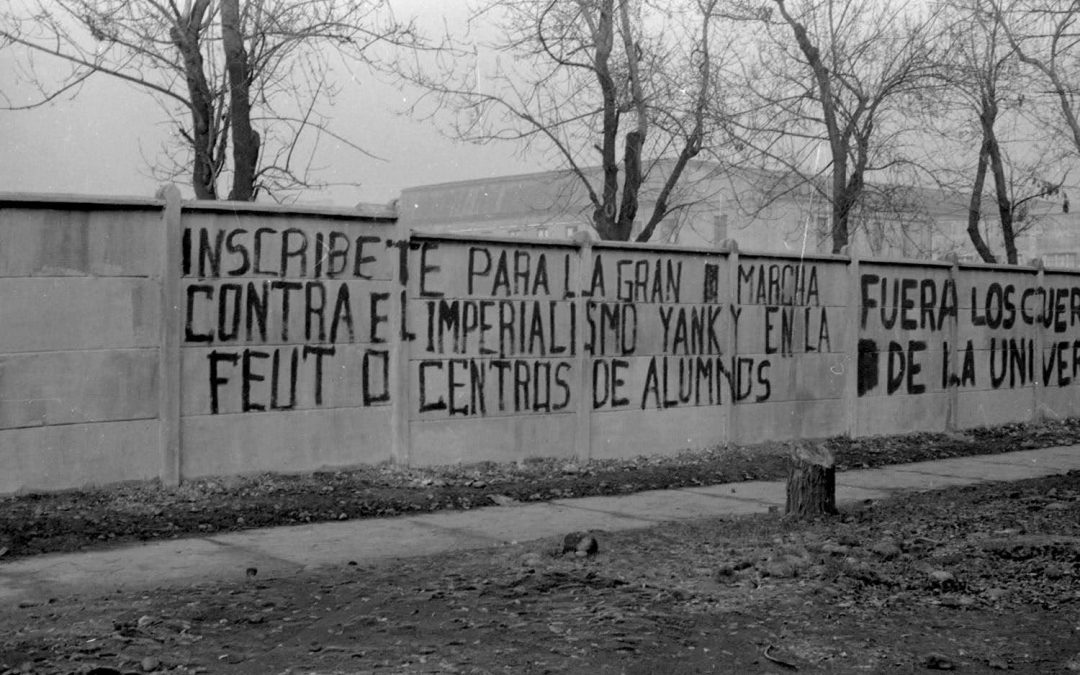 INSCRIBETE PARA LA GRAN MARCHA
CONTRA EL IMPERIALISMO YANKY EN LA
FEUT O CENTROS DE ALUMNOS
FUERA LOS CUER
DE LA UNIVER